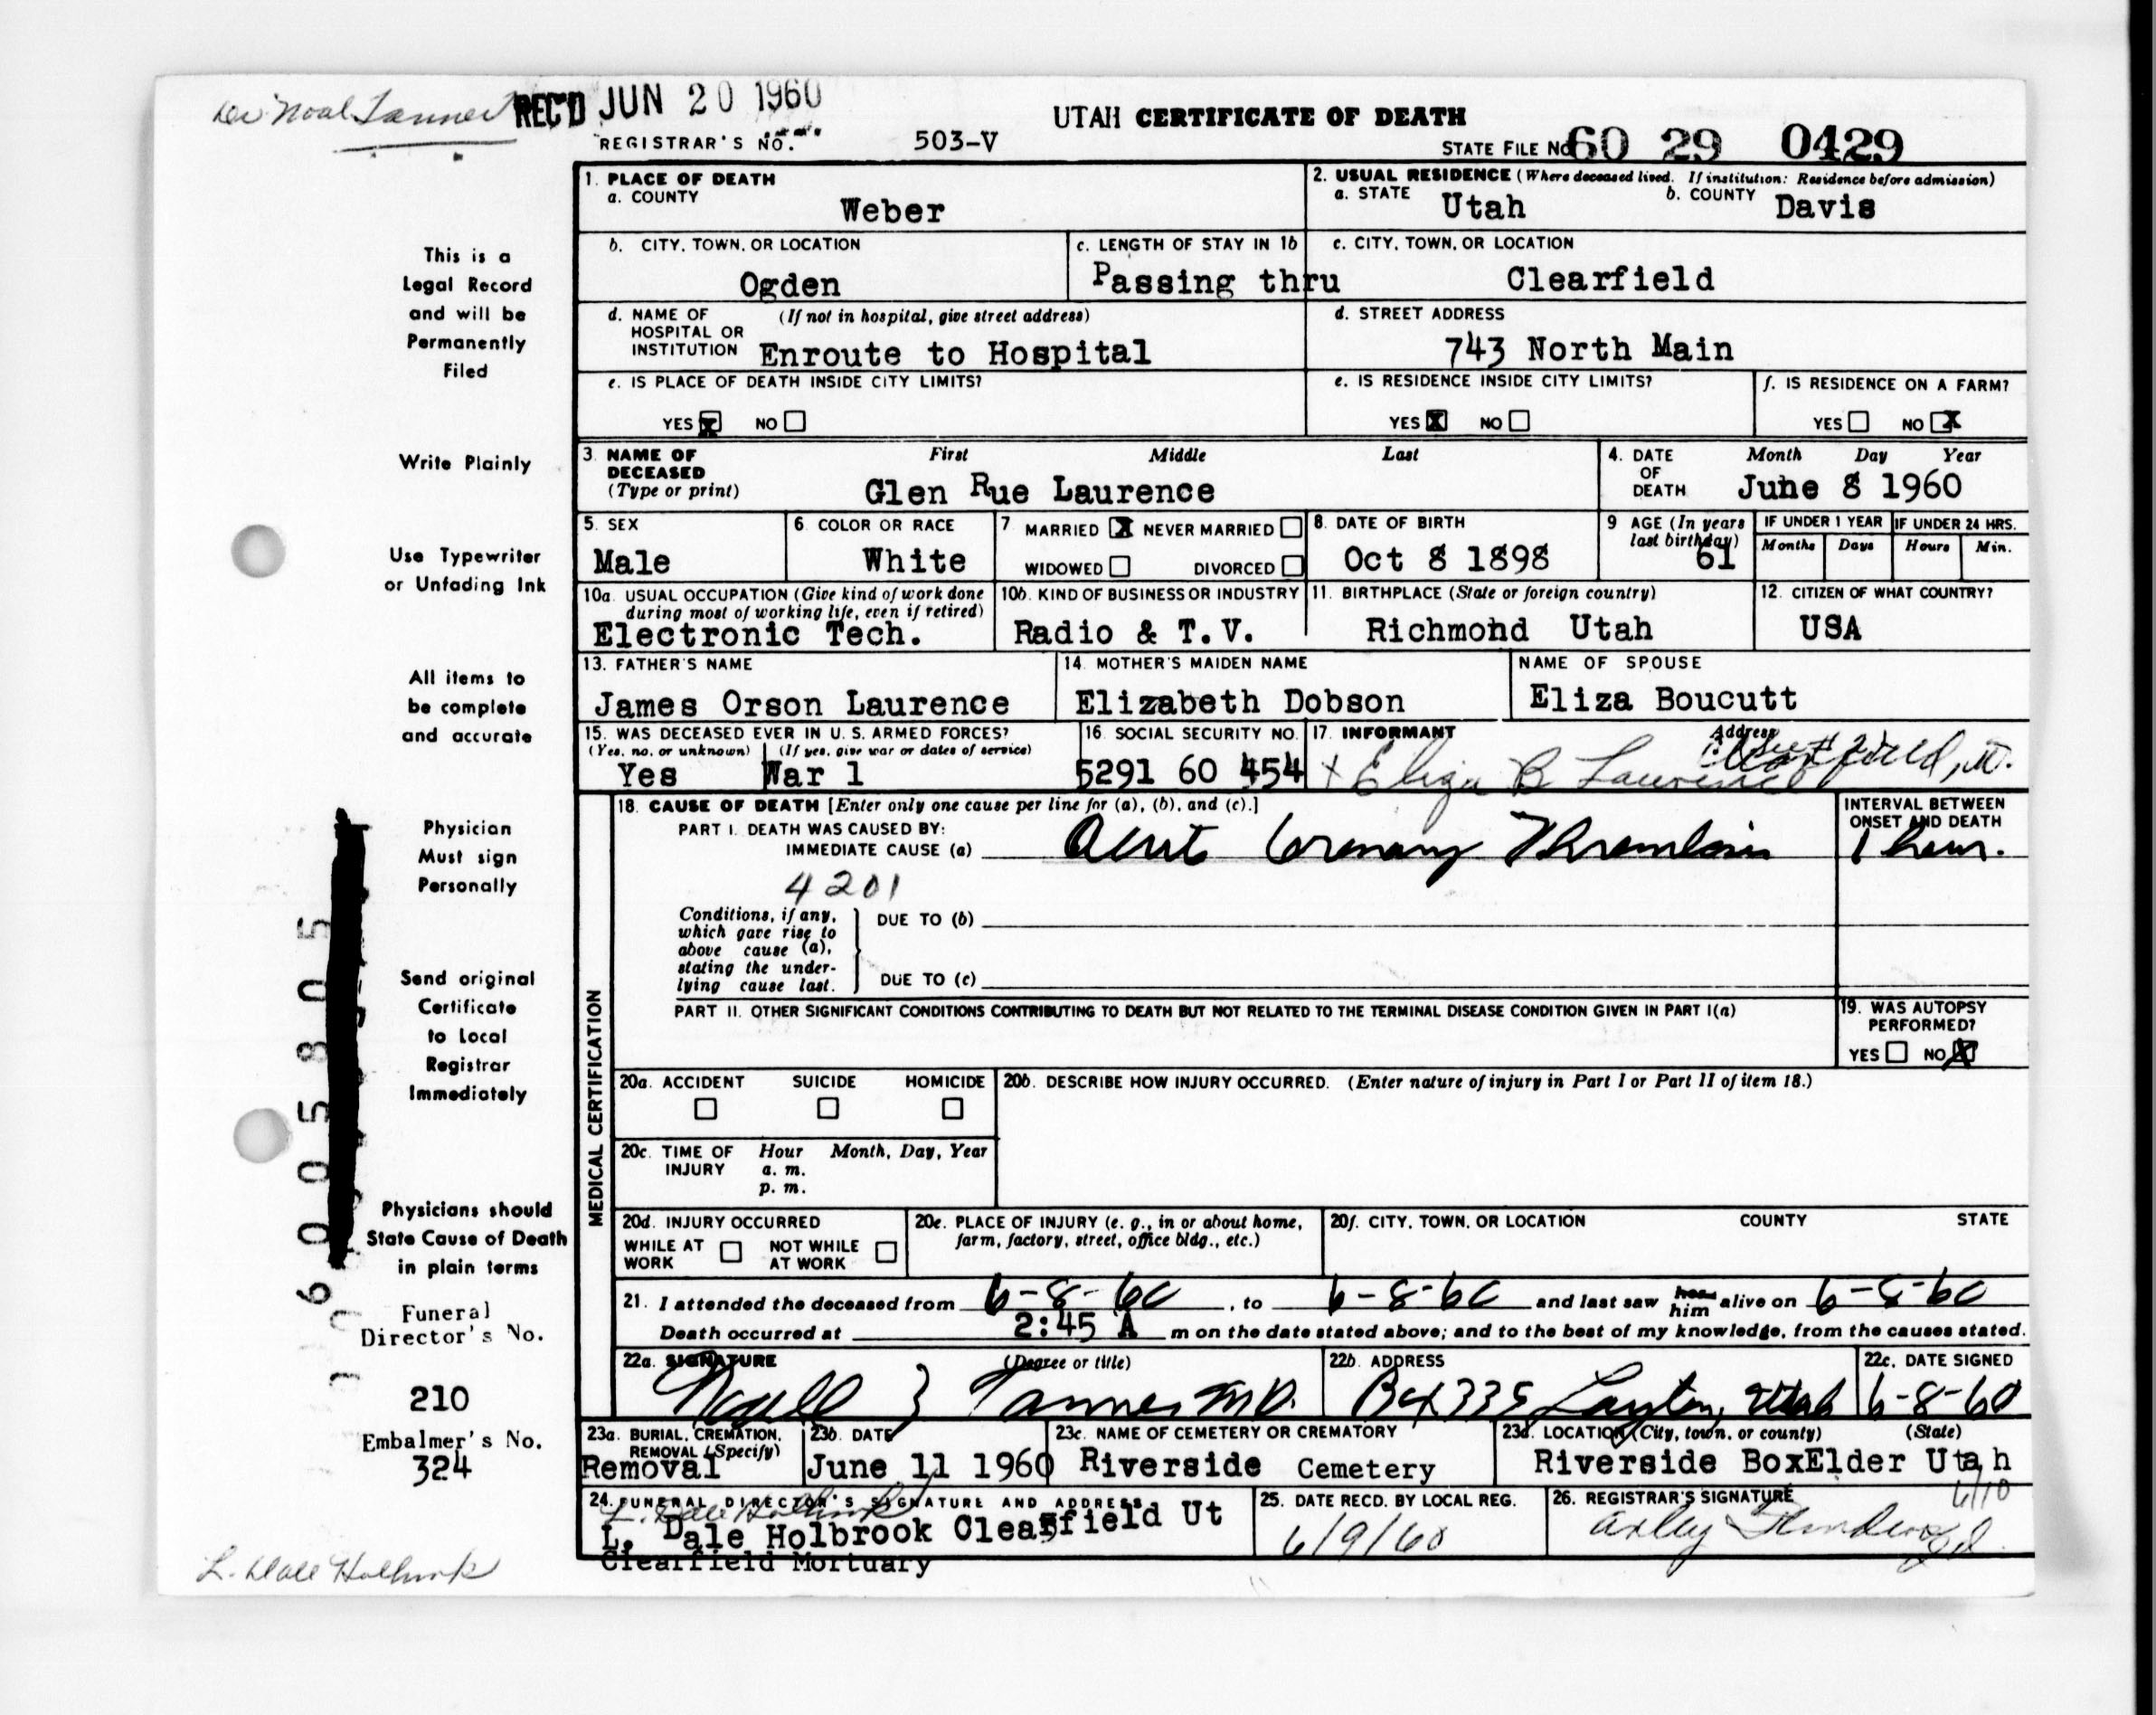 Noal Tanner
REC'D JUN 20 1960
UTAH CERTIFICATE OF DEATH
REGISTRAR'S NO. 503-V
STATE FILE No 60 29 0429
This is a
Legal Record
and will be
Permanently
Filed
Write Plainly
Use Typewriter
or Unfading Ink
All items to
be complete
and accurate
Physician
Must sign
Personally
Send original
Certificate
to Local
Registrar
Immediately
Physicians should
State Cause of Death
in plain terms
Funeral
Director's No.
210
Embalmer's No.
324
L. Dale Holbrook
1. PLACE OF DEATH
a. COUNTY
Weber
2. USUAL RESIDENCE (Where deceased lived. If institution: Residence before admission)
a. STATE Utah b. COUNTY Davis
b. CITY, TOWN, OR LOCATION
Ogden
c. LENGTH OF STAY IN 1b
Passing thru
c. CITY, TOWN, OR LOCATION
Clearfield
d. NAME OF (If not in hospital, give street address)
HOSPITAL OR
INSTITUTION Enroute to Hospital
d. STREET ADDRESS
743 North Main
e. IS PLACE OF DEATH INSIDE CITY LIMITS?
YES X NO
e. IS RESIDENCE INSIDE CITY LIMITS?
YES X NO
f. IS RESIDENCE ON A FARM?
YES NO X
3. NAME OF First Middle Last
DECEASED
(Type or print) Glen Rue Laurence
4. DATE Month Day Year
OF
DEATH June 8 1960
5. SEX
Male
6. COLOR OR RACE
White
7 MARRIED X NEVER MARRIED
WIDOWED DIVORCED
8. DATE OF BIRTH
Oct 8 1898
9 AGE (In years
last birthday)
61
IF UNDER 1 YEAR IF UNDER 24 HRS.
Months Days Hours Min.
10a. USUAL OCCUPATION (Give kind of work done
during most of working life, even if retired)
Electronic Tech.
10b. KIND OF BUSINESS OR INDUSTRY
Radio & T.V.
11. BIRTHPLACE (State or foreign country)
Richmond Utah
12. CITIZEN OF WHAT COUNTRY?
USA
13. FATHER'S NAME
James Orson Laurence
14. MOTHER'S MAIDEN NAME
Elizabeth Dobson
NAME OF SPOUSE
Eliza Boucutt
15. WAS DECEASED EVER IN U. S. ARMED FORCES?
(Yes, no, or unknown) (If yes, give war or dates of service)
Yes War 1
16. SOCIAL SECURITY NO.
5291 60 454
17. INFORMANT Address
x Eliza B Laurence
18. CAUSE OF DEATH [Enter only one cause per line for (a), (b), and (c).]
PART I. DEATH WAS CAUSED BY:
IMMEDIATE CAUSE (a) Acute Coronary Thrombosis
INTERVAL BETWEEN
ONSET AND DEATH
1 hour.
4201
Conditions, if any,
which gave rise to
above cause (a),
stating the under-
lying cause last.
DUE TO (b)
DUE TO (c)
PART II. OTHER SIGNIFICANT CONDITIONS CONTRIBUTING TO DEATH BUT NOT RELATED TO THE TERMINAL DISEASE CONDITION GIVEN IN PART I(a)
19. WAS AUTOPSY
PERFORMED?
YES NO X
MEDICAL CERTIFICATION
20a. ACCIDENT SUICIDE HOMICIDE
20b. DESCRIBE HOW INJURY OCCURRED. (Enter nature of injury in Part I or Part II of item 18.)
20c. TIME OF Hour Month, Day, Year
INJURY a. m.
p. m.
20d. INJURY OCCURRED
WHILE AT NOT WHILE
WORK AT WORK
20e. PLACE OF INJURY (e. g., in or about home,
farm, factory, street, office bldg., etc.)
20f. CITY, TOWN, OR LOCATION COUNTY STATE
21. I attended the deceased from 6-8-60, to 6-8-60 and last saw her him alive on 6-8-60
Death occurred at 2:45 A m on the date stated above; and to the best of my knowledge, from the causes stated.
22a. SIGNATURE (Degree or title)
Noall Z Tanner M.D.
22b. ADDRESS
Box 335 Layton, Utah
22c. DATE SIGNED
6-8-60
23a. BURIAL, CREMATION,
REMOVAL (Specify)
Removal
23b. DATE
June 11 1960
23c. NAME OF CEMETERY OR CREMATORY
Riverside Cemetery
23d. LOCATION (City, town, or county) (State)
Riverside BoxElder Utah
24. FUNERAL DIRECTOR'S SIGNATURE AND ADDRESS
L. Dale Holbrook
L. Dale Holbrook Clearfield Ut
Clearfield Mortuary
25. DATE RECD. BY LOCAL REG.
6/9/60
26. REGISTRAR'S SIGNATURE
6/10